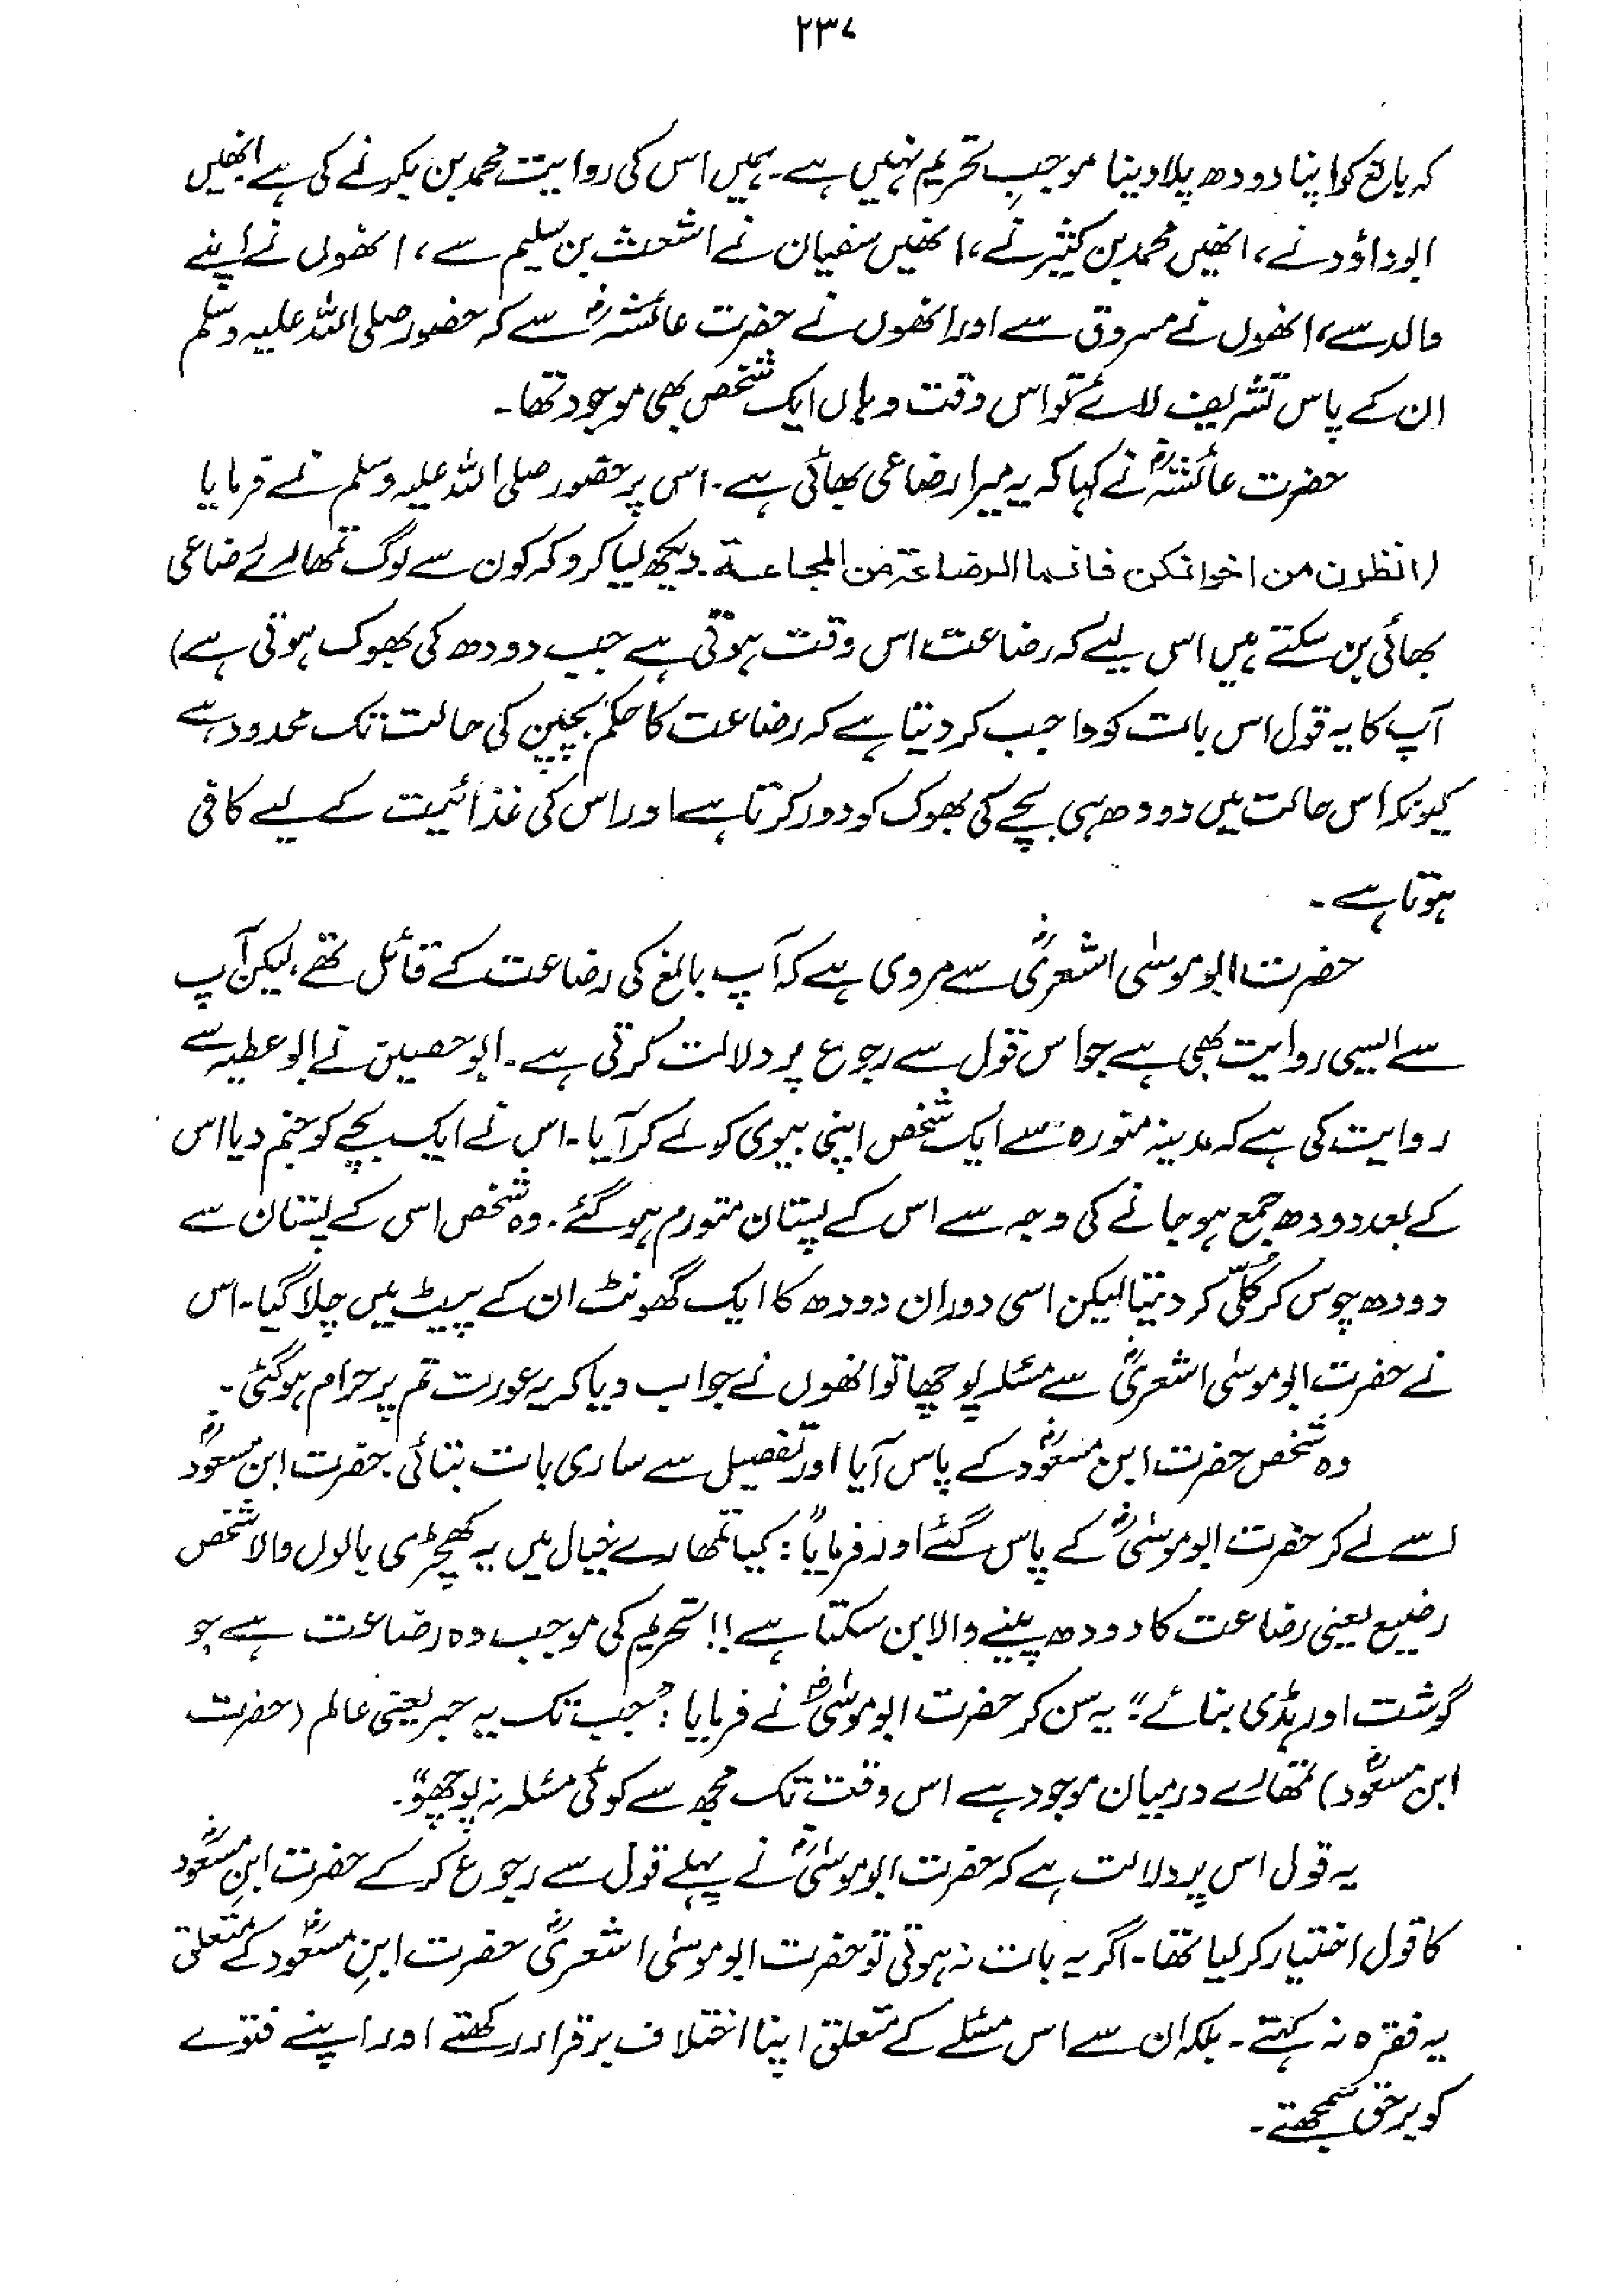 ۲۳۷
کہ بالغ کو اپنا دودھ پلا دینا موجبِ تحریم نہیں ہے۔ ہمیں اس کی روایت محمد بن بکر نے کی ہے انھیں
ابوداؤد نے، انھیں محمد بن کثیر نے، انھیں سفیان نے اشعث بن سلیم سے، انھوں نے اپنے
والد سے، انھوں نے مسروق سے اور انھوں نے حضرت عائشہؓ سے کہ حضور صلی اللہ علیہ وسلم
ان کے پاس تشریف لائے تو اس وقت وہاں ایک شخص بھی موجود تھا۔
حضرت عائشہؓ نے کہا کہ یہ میرا رضاعی بھائی ہے۔ اس پر حضور صلی اللہ علیہ وسلم نے فرمایا
(انظرن من اخوانکن فانما الرضاعۃ من المجاعۃ۔ دیکھ لیا کرو کہ کون سے لوگ تمھارے رضاعی
بھائی بن سکتے ہیں اس لیے کہ رضاعت اس وقت ہوتی ہے جب دودھ کی بھوک ہوتی ہے)
آپ کا یہ قول اس بات کو واجب کر دیتا ہے کہ رضاعت کا حکم بچپن کی حالت تک محدود ہے
کیونکہ اس حالت میں دودھ ہی بچے کی بھوک کو دور کرتا ہے اور اس کی غذائیت کے لیے کافی
ہوتا ہے۔
حضرت ابوموسٰی اشعریؓ سے مروی ہے کہ آپ بالغ کی رضاعت کے قائل تھے، لیکن آپ
سے ایسی روایت بھی ہے جو اس قول سے رجوع پر دلالت کرتی ہے۔ ابوحصین نے ابوعطیہ سے
روایت کی ہے کہ مدینہ منورہ سے ایک شخص اپنی بیوی کو لے کر آیا۔ اس نے ایک بچے کو جنم دیا اس
کے بعد دودھ جمع ہو جانے کی وجہ سے اس کے پستان متورم ہو گئے۔ وہ شخص اس کے پستان سے
دودھ چوس کر کُلّی کر دیتا لیکن اسی دوران دودھ کا ایک گھونٹ ان کے پیٹ میں چلا گیا۔ اس
نے حضرت ابوموسٰی اشعریؓ سے مسئلہ پوچھا تو انھوں نے جواب دیا کہ یہ عورت تم پر حرام ہو گئی۔
وہ شخص حضرت ابن مسعودؓ کے پاس آیا اور تفصیل سے ساری بات بتائی۔ حضرت ابن مسعودؓ
اسے لے کر حضرت ابوموسٰیؓ کے پاس گئے اور فرمایا: "کیا تمھارے خیال میں یہ کھچڑی بالوں والا شخص
رضیع یعنی رضاعت کا دودھ پینے والا بن سکتا ہے!! تحریم کی موجب وہ رضاعت ہے جو
گوشت اور ہڈی بنائے" یہ سن کر حضرت ابوموسٰیؓ نے فرمایا: "جب تک یہ حبر یعنی عالم (حضرت
ابن مسعودؓ) تمھارے درمیان موجود ہے اس وقت تک مجھ سے کوئی مسئلہ نہ پوچھو"۔
یہ قول اس پر دلالت ہے کہ حضرت ابوموسٰیؓ نے پہلے قول سے رجوع کر کے حضرت ابنِ مسعودؓ
کا قول اختیار کر لیا تھا۔ اگر یہ بات نہ ہوتی تو حضرت ابوموسٰی اشعریؓ حضرت ابنِ مسعودؓ کے متعلق
یہ فقرہ نہ کہتے۔ بلکہ ان سے اس مسئلے کے متعلق اپنا اختلاف برقرار رکھتے اور اپنے فتوے
کو برحق سمجھتے۔